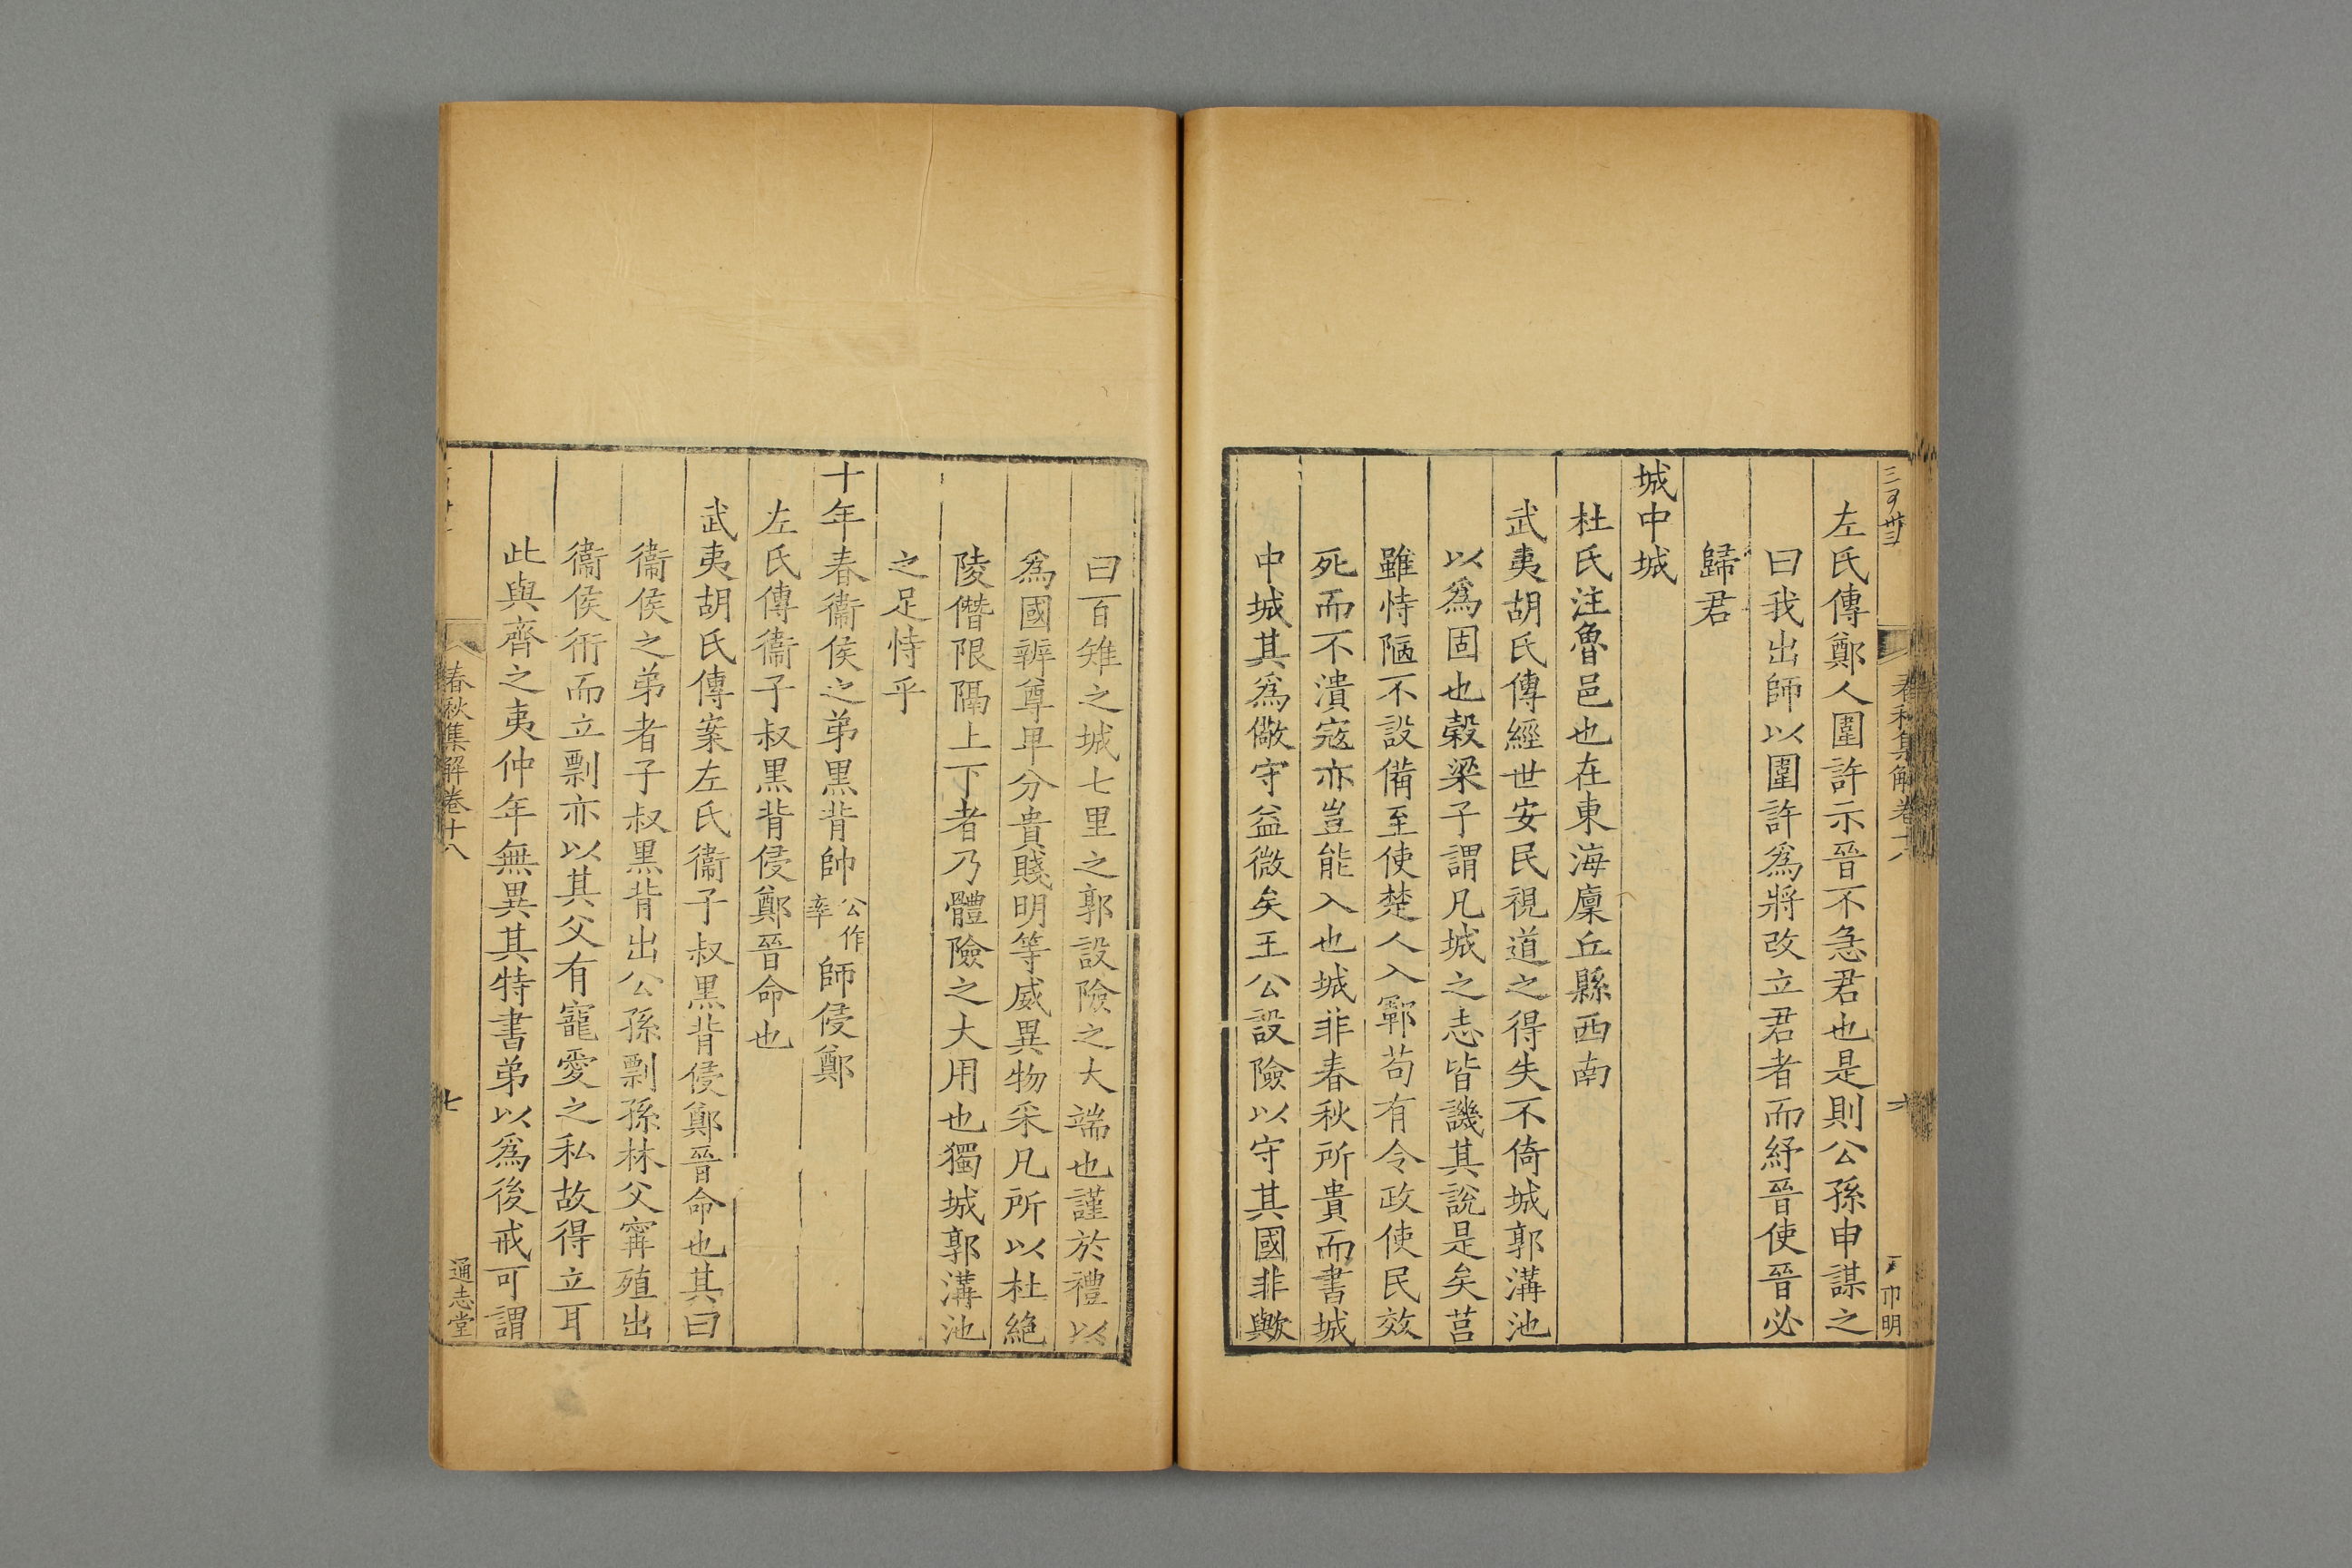 左氏傳鄭人圍許示晉不急君也是則公孫申謀之
曰我出師以圍許爲將改立君者而紓晉使晉必
歸君
城中城
杜氏注魯邑也在東海廩丘縣西南
武夷胡氏傳經世安民視道之得失不倚城郭溝池
以爲固也穀梁子謂凡城之志皆譏其說是矣莒
雖恃陋不設備至使楚人入鄆苟有令政使民效
死而不潰寇亦豈能入也城非春秋所貴而書城
中城其爲儆守益微矣王公設險以守其國非歟
曰百雉之城七里之郭設險之大端也謹於禮以
爲國辨尊卑分貴賤明等威異物采凡所以杜絕
陵僭限隔上下者乃體險之大用也獨城郭溝池
之足恃乎
十年春衞侯之弟黑背帥公作率師侵鄭
左氏傳衞子叔黑背侵鄭晉命也
武夷胡氏傳案左氏衞子叔黑背侵鄭晉命也其曰
衞侯之弟者子叔黑背出公孫剽孫林父甯殖出
衞侯衎而立剽亦以其父有寵愛之私故得立耳
此與齊之夷仲年無異其特書弟以爲後戒可謂
春秋集解卷十八
七
通志堂